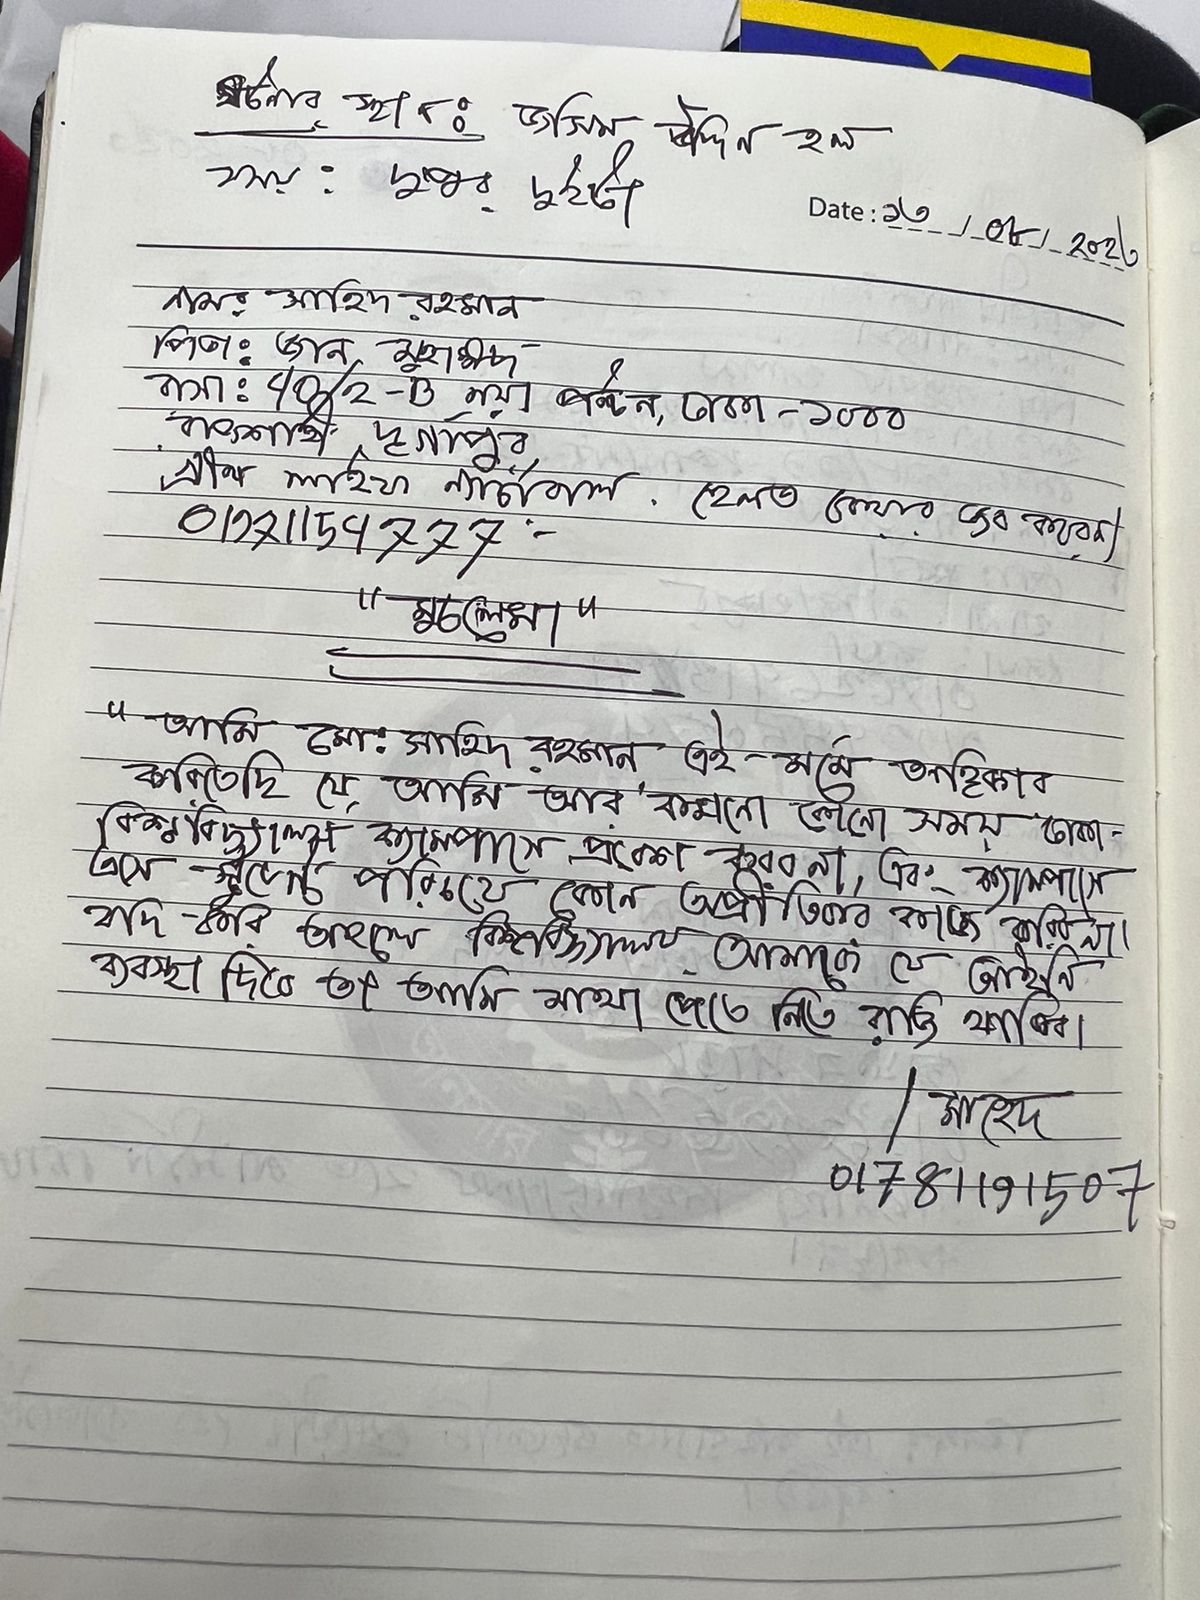 ঘটনার স্থান: জসিম উদ্দিন হল
সময়: দুপুর দুইটা
Date: ১৩/০৮/২০২৩
নাম: সাহিদ রহমান
পিতা: জান মুহাম্মদ
বাসা: 40/2-B নয়া পল্টন, ঢাকা-১০০০
রাজশাহী, দূর্গাপুর,
গ্রীন লাইফ ন্যাচারাল. হেলথ কেয়ার জব করেন।
01721154777
"মুচলেখা"
"আমি মো: সাহিদ রহমান এই-মর্মে অঙ্গিকার
করিতেছি যে, আমি আর কখনো কোনো সময় ঢাকা-
বিশ্ববিদ্যালয় ক্যাম্পাসে প্রবেশ করব না, এবং ক্যাম্পাসে
এসে স্টুডেন্ট পরিচয়ে কোন অপ্রীতিকর কাজ করিব না।
যদি করি তাহলে বিশ্ববিদ্যালয় আমাকে যে আইনি
ব্যবস্থা দিবে তা আমি মাথা পেতে নিতে রাজি থাকিব।
সাহেদ
01781191507